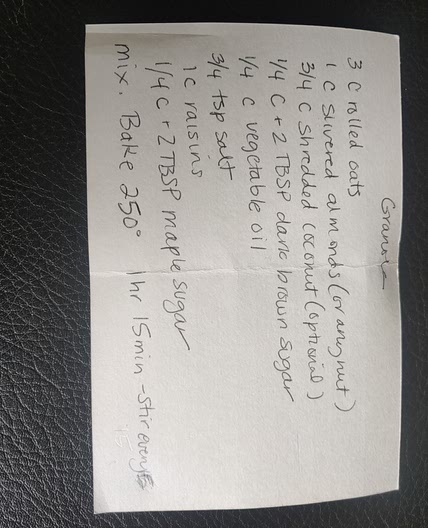 Granola
3 C rolled oats
1 C slivered almonds (or any nut)
3/4 C shredded coconut (optional)
1/4 C + 2 TBSP dark brown sugar
1/4 C vegetable oil
3/4 tsp salt
1 C raisins
1/4 C + 2 TBSP maple sugar
mix. Bake 250° 1hr 15min - stir every